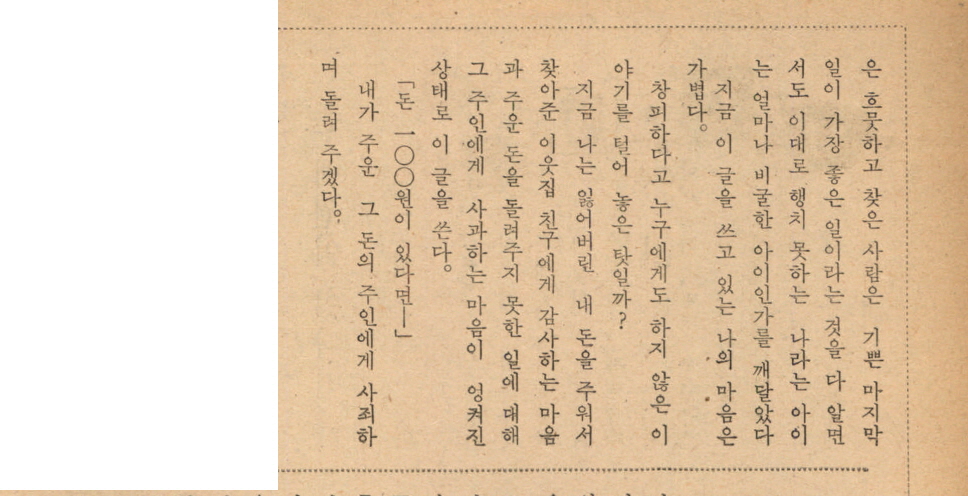 은 흐뭇하고 찾은 사람은 기쁜 마지막
일이 가장 좋은 일이라는 것을 다 알면
서도 이대로 행치 못하는 나라는 아이
는 얼마나 비굴한 아이인가를 깨달았다
지금 이 글을 쓰고 있는 나의 마음은
가볍다。
창피하다고 누구에게도 하지 않은 이
야기를 털어 놓은 탓일까?
지금 나는 잃어버린 내 돈을 주워서
찾아준 이웃집 친구에게 감사하는 마음
과 주운 돈을 돌려주지 못한 일에 대해
그 주인에게 사과하는 마음이 엉켜진
상태로 이 글을 쓴다。
「돈 一〇〇원이 있다면―」
내가 주운 그 돈의 주인에게 사죄하
며 돌려 주겠다。